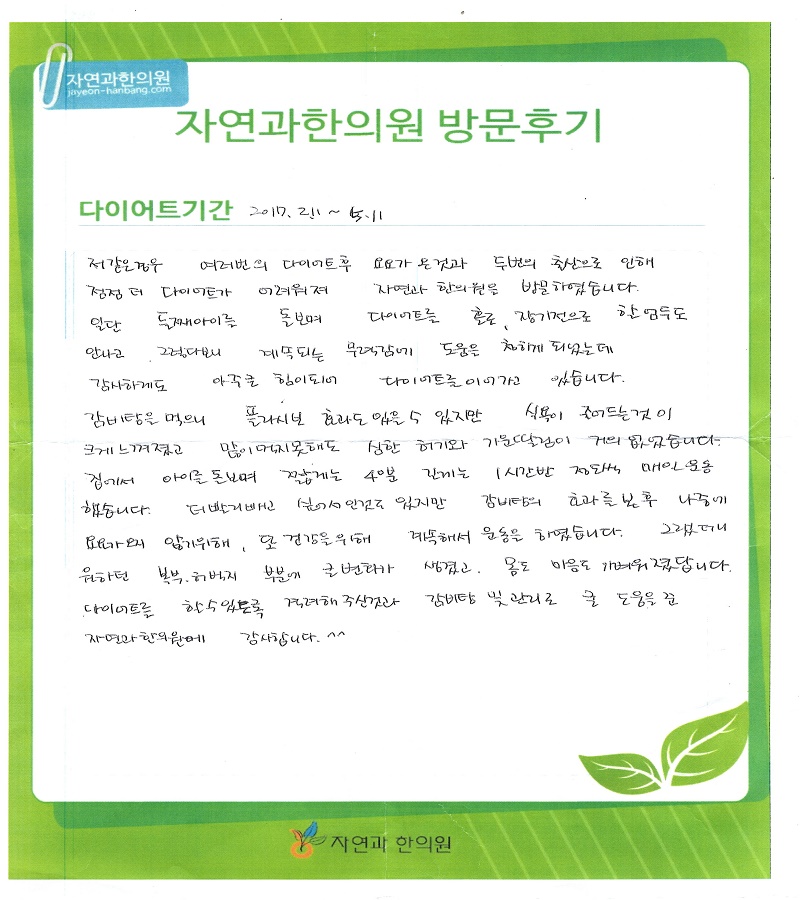 자연과한의원
jayeon-hanbang.com
자연과한의원 방문후기
다이어트기간 2017. 2.11 ~ 5.11
저같은경우 여러번의 다이어트후 요요가 온것과 두번의 출산으로 인해
점점 더 다이어트가 어려워져 자연과 한의원을 방문하였습니다.
일단 둘째아이를 돌보며 다이어트를 홀로, 장기전으로 할 엄두도
안나고 그렇다보니 계속되는 무력감에 도움을 청하게 되었는데
감사하게도 아주큰 힘이되어 다이어트를 이어가고 있습니다.
감비탕을 먹으니 플라시보 효과도 있을 수 있지만 식욕이 줄어드는것이
크게 느껴졌고 많이 먹지못해도 심한 허기와 기운딸림이 거의 없었습니다.
집에서 아이를 돌보며 짧게는 40분 길게는 1시간반 정도씩 매일 운동
했습니다. 더빨리빼고 싶어서인것도 있지만 감비탕의 효과를 본 후 나중에
요요가 오지 않기위해, 또 건강을 위해 계속해서 운동을 하였습니다. 그랬더니
원하던 복부.허벅지 부분에 큰변화가 생겼고. 몸도 마음도 가벼워졌답니다.
다이어트를 할 수 있도록 격려해 주신것과 감비탕 및 관리로 큰 도움을 준
자연과한의원에 감사합니다.^^
자연과 한의원